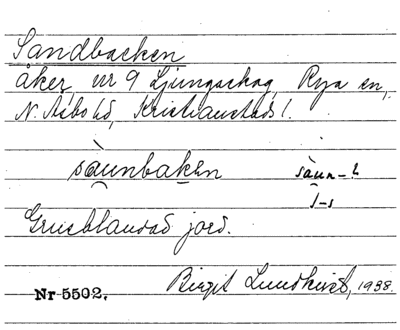 Sandbacken
åker, nr 9 Ljungaskog, Rya sn,
N. Åsbo hd, Kristianstads l.
sàunbakɛn sàun-?
J-s
Grusblandad jord.
Nr 5502. Birgit Lundkvist, 1938.